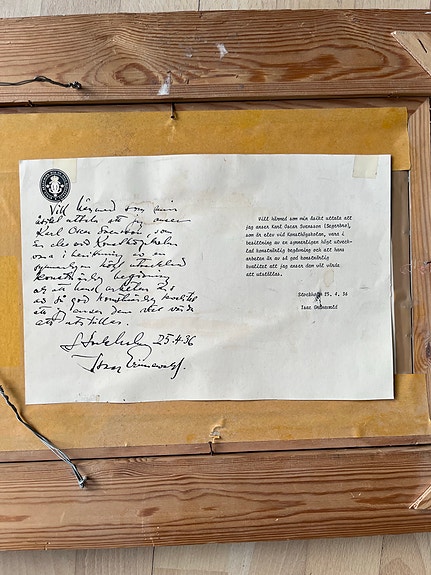 Vill härmed som min
åsikt uttala att jag anser
Karl Oscar Svensson, som
är elev vid Konsthögskolan
vara i besittning av en
synnerligen högt utvecklad
konstnärlig begåvning
och att hans arbeten är
av så god konstnärlig kvalitet
att jag anser dem väl värda
att utställas.
Stockholm 25.4.36
Isaac Grünewald.
Vill härmed som min åsikt uttala att
jag anser Karl Oscar Svensson (Segersno),
som är elev vid Konsthögskolan, vara i
besittning av en synnerligen högt utveck-
lad konstnärlig begåvning och att hans
arbeten är av så god konstnärlig
kvalitet att jag anser dem väl värda
att utställas.
Stockholm 25. 4. 36
Isac Grünewald